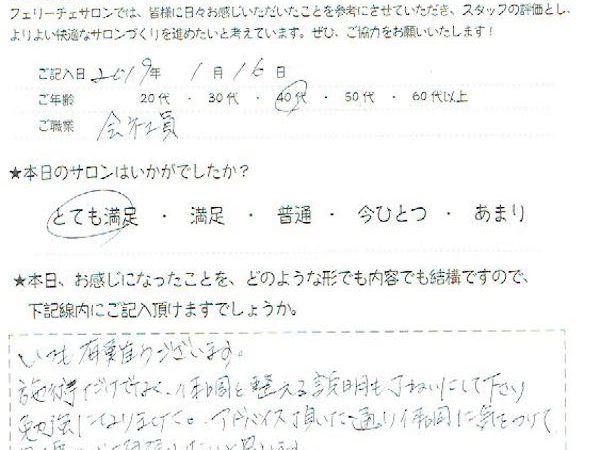 フェリーチェサロンでは、皆様に日々お感じいただいたことを参考にさせていただき、スタッフの評価とし、
よりよい快適なサロンづくりを進めたいと考えています。ぜひ、ご協力をお願いいたします！
ご記入日 2019年 1月 16日
ご年齢 20代 ・ 30代 ・ 40代 ・ 50代 ・ 60代以上
ご職業 会社員
★本日のサロンはいかがでしたか？
とても満足 ・ 満足 ・ 普通 ・ 今ひとつ ・ あまり
★本日、お感じになったことを、どのような形でも内容でも結構ですので、
下記線内にご記入頂けますでしょうか。
いつも有難うございます。
施術だけでなく、体調を整える説明も丁ねいにして下さり
勉強になりました。アドバイス頂いた通り体調に気をつけて